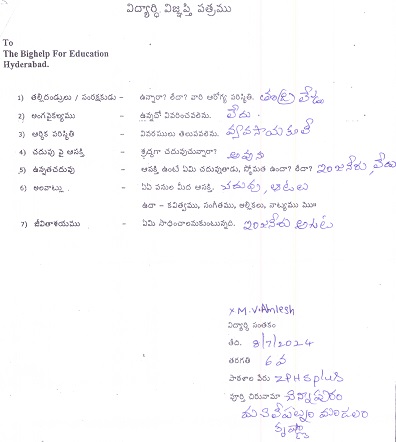 విద్యార్ధి విజ్ఞప్తి పత్రము
To
The Bighelp For Education
Hyderabad.
1) తల్లిదండ్రులు / సంరక్షకుడు – ఉన్నారా? లేదా? వారి ఆరోగ్య పరిస్థితి. తండ్రి లేడు
2) అంగవైకల్యము – ఉన్నచో వివరించవలెను. లేదు.
3) ఆర్థిక పరిస్థితి – వివరములు తెలుపవలెను. వ్యవసాయ కూలీ
4) చదువు పై ఆసక్తి – శ్రద్ధగా చదువుచున్నారా? అవును
5) ఉన్నతచదువు – ఆసక్తి ఉంటే ఏమి చదువుతాడు, స్తోమత ఉందా? లేదా? ఇంజనీరు, లేదు
6) అలవాట్లు – ఏఏ పనుల మీద ఆసక్తి. చదువు, ఆటలు
ఉదా – కవిత్వము, సంగీతము, అల్లికలు, నాట్యము మొ॥
7) జీవితాశయము – ఏమి సాధించాలనుకుంటున్నది. ఇంజనీరు అగుట
x M.V.Amlesh
విద్యార్థి సంతకం
తేది. 8/7/2024
తరగతి 6 వ
పాఠశాల పేరు ZPHS plus
పూర్తి చిరునామా చిన్నాపురం
మచిలీపట్నం మండలం
కృష్ణా